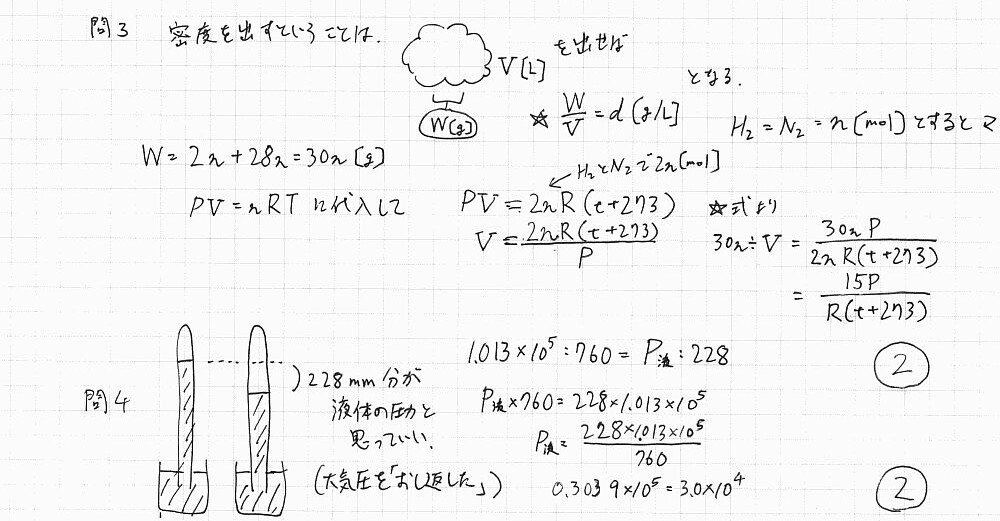 問3 密度を出すということは、
V[L] を出せば
W[g]
☆ W/V = d [g/L] となる.
H₂ = N₂ = n [mol] とすると
W = 2n + 28n = 30n [g]
H₂とN₂で2n[mol]
PV = nRT に代入して PV = 2nR(t+273)
V = 2nR(t+273)/P
☆式より
30n÷V = 30nP/2nR(t+273)
= 15P/R(t+273)
②
問4
)228mm分が
液体の圧力と
思っていい.
(大気圧を「おし返した」)
1.013×10⁵ : 760 = P液 : 228
P液×760 = 228×1.013×10⁵
P液 = 228×1.013×10⁵/760
0.3039×10⁵ = 3.0×10⁴
②